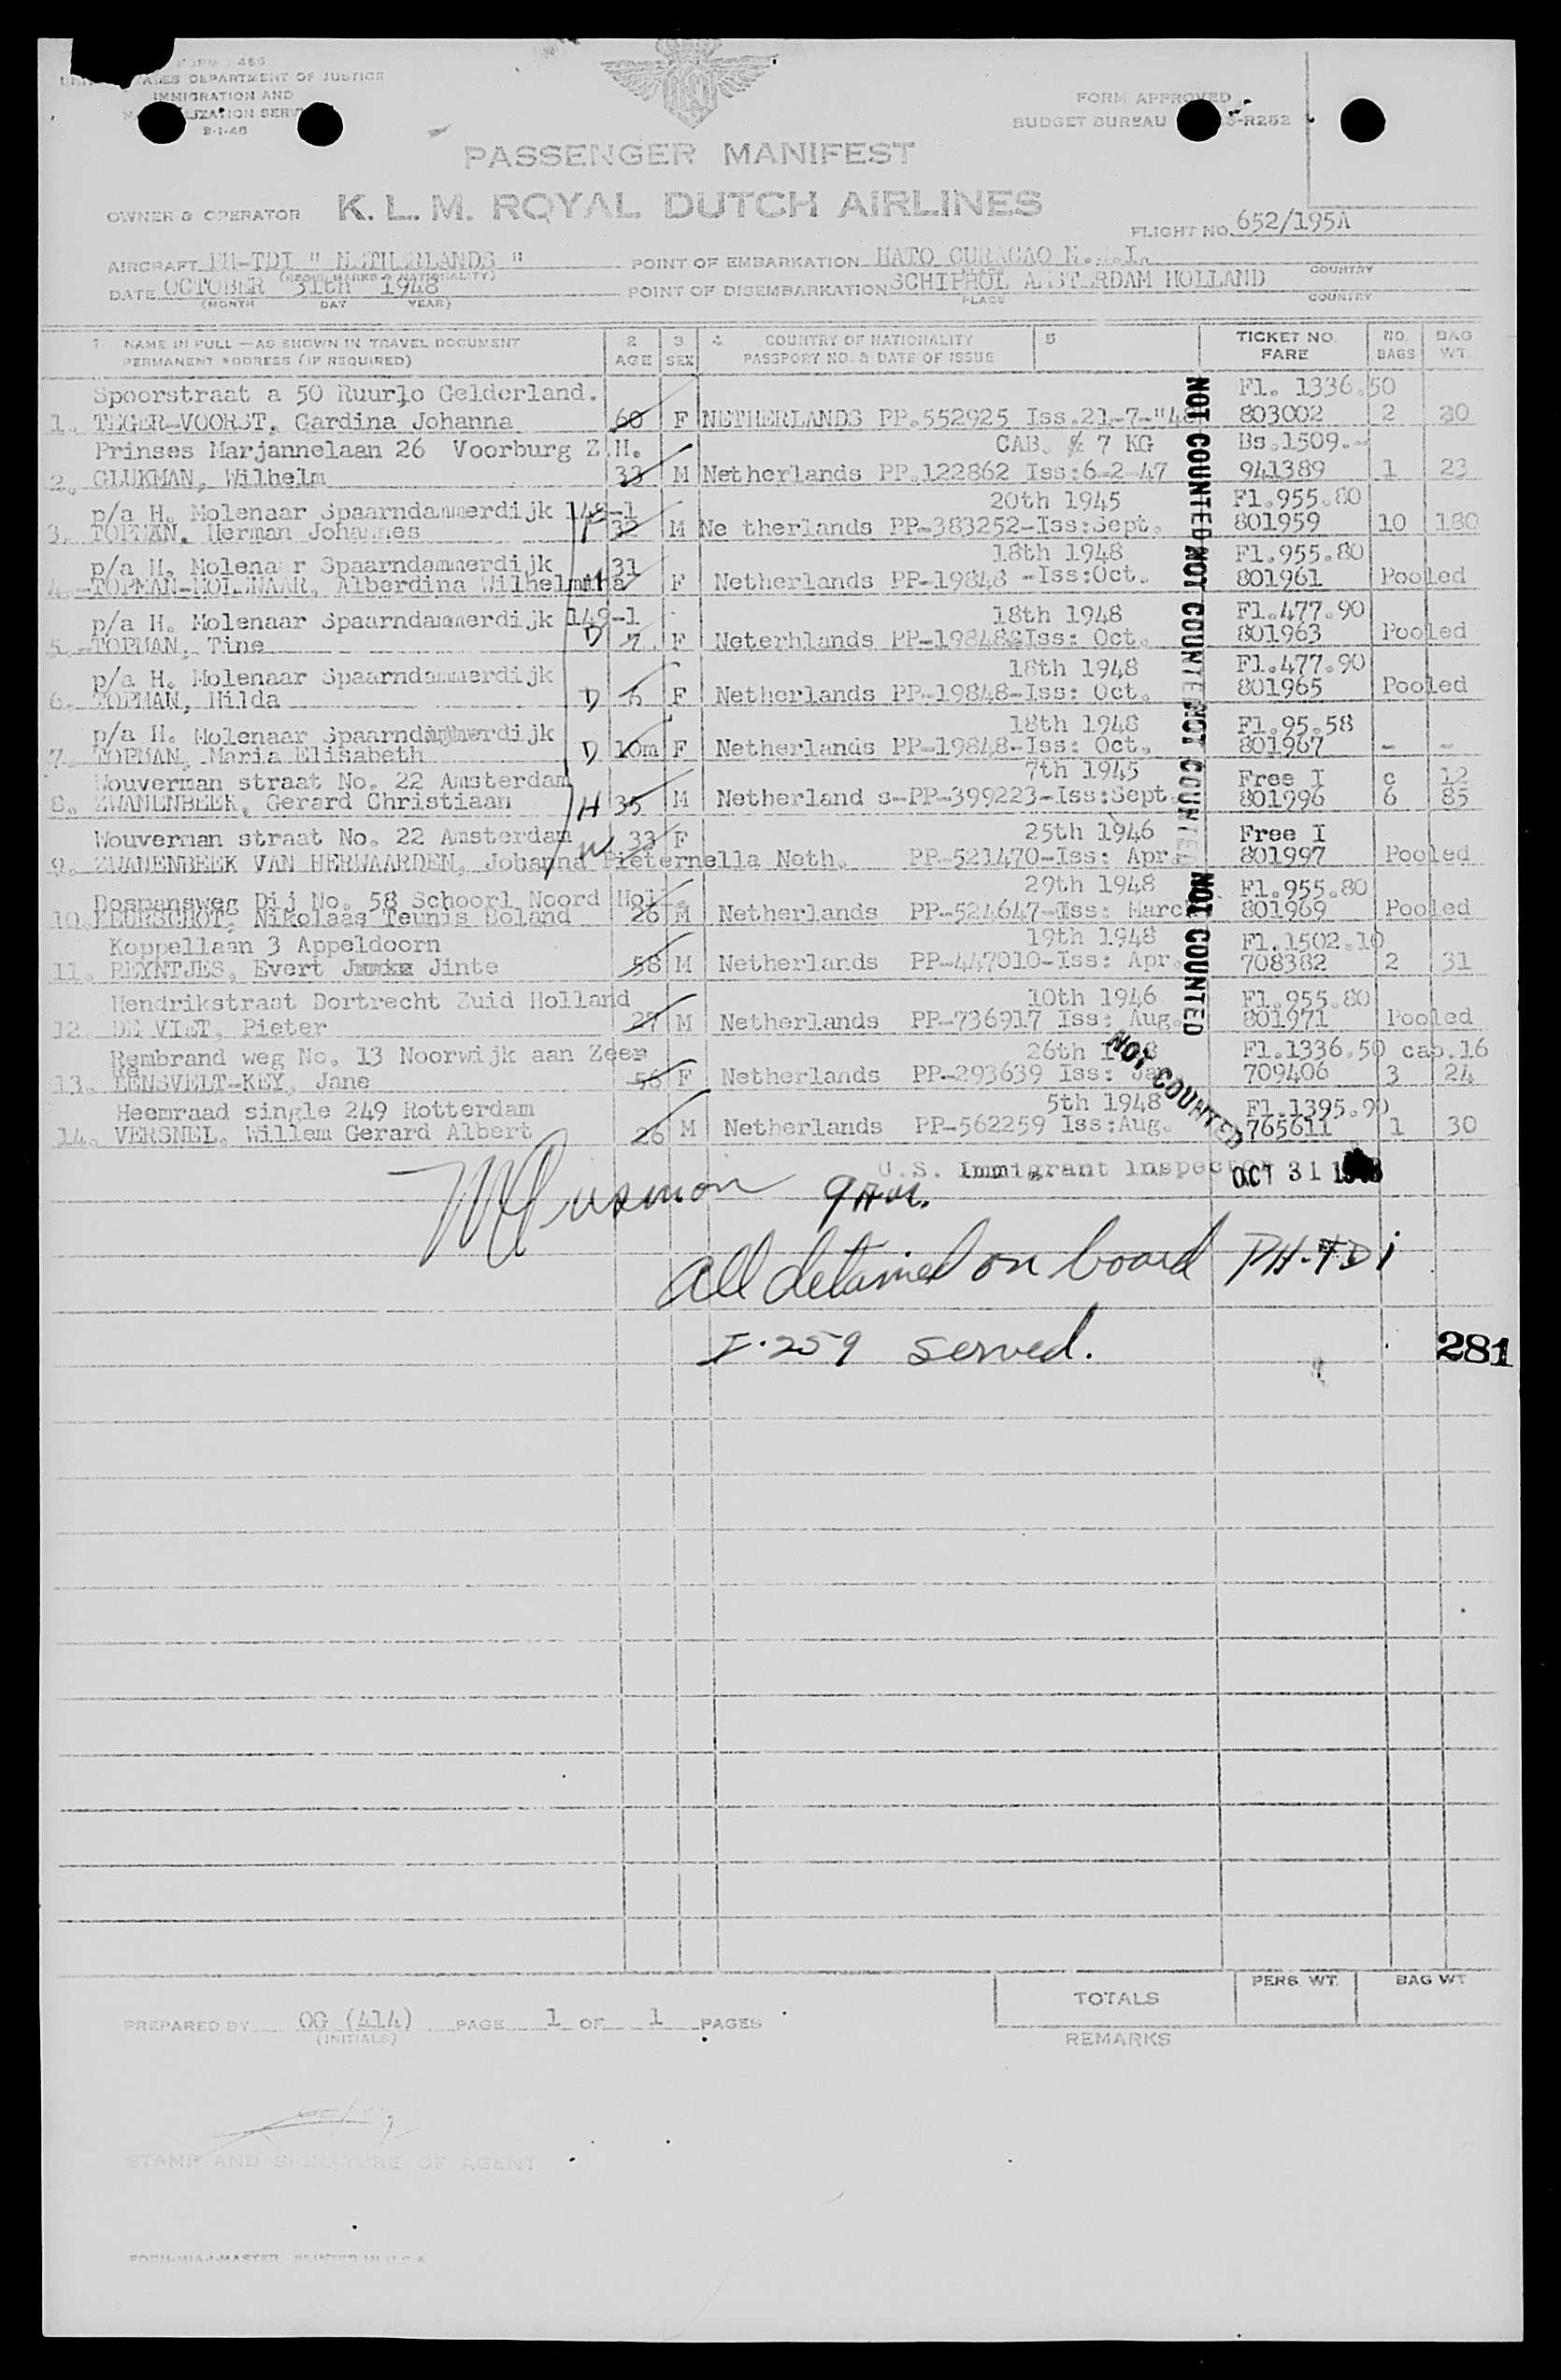 FORM I-466
UNITED STATES DEPARTMENT OF JUSTICE
IMMIGRATION AND
NATURALIZATION SERVICE
FORM APPROVED
BUDGET BUREAU -R252
PASSENGER MANIFEST
OWNER & OPERATOR K. L. M. ROYAL DUTCH AIRLINES
FLIGHT NO. 652/195A
AIRCRAFT PH-TDI " NETHERLANDS " POINT OF EMBARKATION HATO CURACAO N.W.I.
(REGIS. MARKS & NATIONALITY) PLACE COUNTRY
DATE OCTOBER 31th 1948 POINT OF DISEMBARKATION SCHIPHOL AMSTERDAM HOLLAND
(MONTH DAY YEAR) PLACE COUNTRY
1 NAME IN FULL — AS SHOWN IN TRAVEL DOCUMENT 2 3 4 COUNTRY OF NATIONALITY 5 TICKET NO. NO. BAG
PERMANENT ADDRESS (IF REQUIRED) AGE SEX PASSPORT NO. & DATE OF ISSUE FARE BAGS WT.
Spoorstraat a 50 Ruurlo Gelderland. Fl. 1336.50
1. TEGER-VOORST, Gardina Johanna 60 F NETHERLANDS PP.552925 Iss.21-7-"48 803002 2 30
Prinses Marjannelaan 26 Voorburg Z.H. CAB. 7 KG Bs.1509.-
2. GLUKMAN, Wilhelm 33 M Netherlands PP.122862 Iss:6-2-47 941389 1 23
p/a H. Molenaar Spaarndammerdijk 149-1 20th 1945 Fl.955.80
3. TOPMAN, Herman Johannes 32 M Ne therlands PP-383252-Iss:Sept. 801959 10 180
p/a H. Molena r Spaarndammerdijk 31 18th 1948 Fl.955.80
4.-TOPMAN-MOLENAAR, Alberdina Wilhelmina F Netherlands PP-19848 -Iss:Oct. 801961 Pooled
p/a H. Molenaar Spaarndammerdijk 149-1 18th 1948 Fl.477.90
5.-TOPMAN, Tine D 7 F Neterhlands PP-19848-Iss: Oct. 801963 Pooled
p/a H. Molenaar Spaarndammerdijk 18th 1948 Fl.477.90
6. TOPMAN, Hilda D 6 F Netherlands PP-19848-Iss: Oct. 801965 Pooled
p/a H. Molenaar Spaarndammerdijk 18th 1948 Fl.95.58
7. TOPMAN, Maria Elisabeth D 10m F Netherlands PP-19848-Iss: Oct. 801967 - -
Wouverman straat No. 22 Amsterdam 7th 1945 Free I c 12
8. ZWANENBEEK, Gerard Christiaan H 35 M Netherland s-PP-399223-Iss:Sept. 801996 6 85
Wouverman straat No. 22 Amsterdam W 33 F 25th 1946 Free I
9. ZWANENBEEK VAN HERWAARDEN, Johanna Pieternella Neth. PP-521470-Iss: Apr. 801997 Pooled
Dospansweg Dij No. 58 Schoorl Noord Hol. 29th 1948 Fl.955.80
10. KEURSCHOT, Nikolaas Teunis Boland 26 M Netherlands PP-524647-Iss: March 801969 Pooled
Koppellaan 3 Appeldoorn 19th 1948 Fl.1502.10
11. REYNTJES, Evert Jinte 58 M Netherlands PP-447010-Iss: Apr. 708382 2 31
Hendrikstraat Dortrecht Zuid Holland 10th 1946 Fl.955.80
12. DE VIET, Pieter 27 M Netherlands PP-736917 Iss: Aug. 801971 Pooled
Rembrand weg No. 13 Noorwijk aan Zeen 26th 1948 Fl.1336.50 cab.16
13. LENSVELT-KEY, Jane 56 F Netherlands PP-293639 Iss: Jan. 709406 3 24
Heemraad single 249 Rotterdam 5th 1948 Fl.1395.90
14. VERSNEL, Willem Gerard Albert 26 M Netherlands PP-562259 Iss:Aug. 765611 1 30
NOT COUNTED
NOT COUNTED
NOT COUNTED
NOT COUNTED
NOT COUNTED
U.S. Immigrant Inspector OCT 31 1948
9 AM.
All detained on board PH-TDI
I-259 served.
281
PREPARED BY OG (414) PAGE 1 OF 1 PAGES
(INITIALS)
TOTALS PERS. WT. BAG WT
REMARKS
STAMP AND SIGNATURE OF AGENT